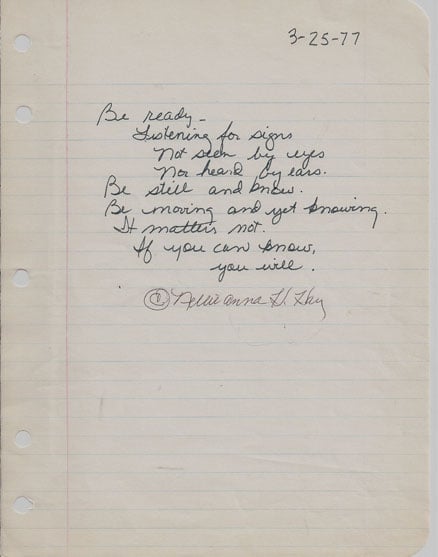 3-25-77
Be ready -
Listening for signs
Not seen by eyes
Nor heard by ears.
Be still and know.
Be moving and yet knowing.
It matters not.
If you can know,
you will.
© Nellieanna H. Hay